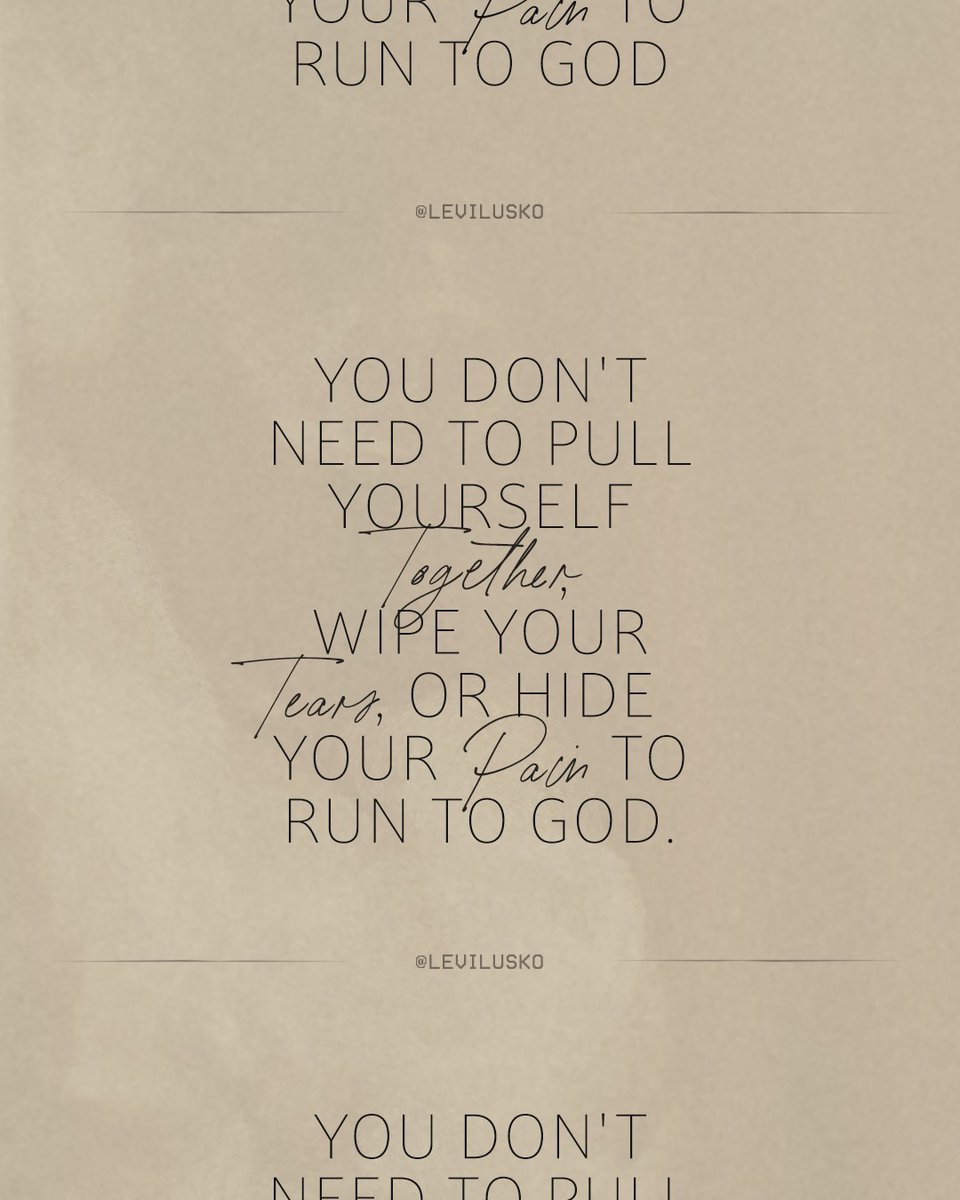 YOUR Pain TO
RUN TO GOD
@LEVILUSKO
YOU DON'T
NEED TO PULL
YOURSELF
Together,
WIPE YOUR
Tears, OR HIDE
YOUR Pain TO
RUN TO GOD.
@LEVILUSKO
YOU DON'T
NEED TO PULL